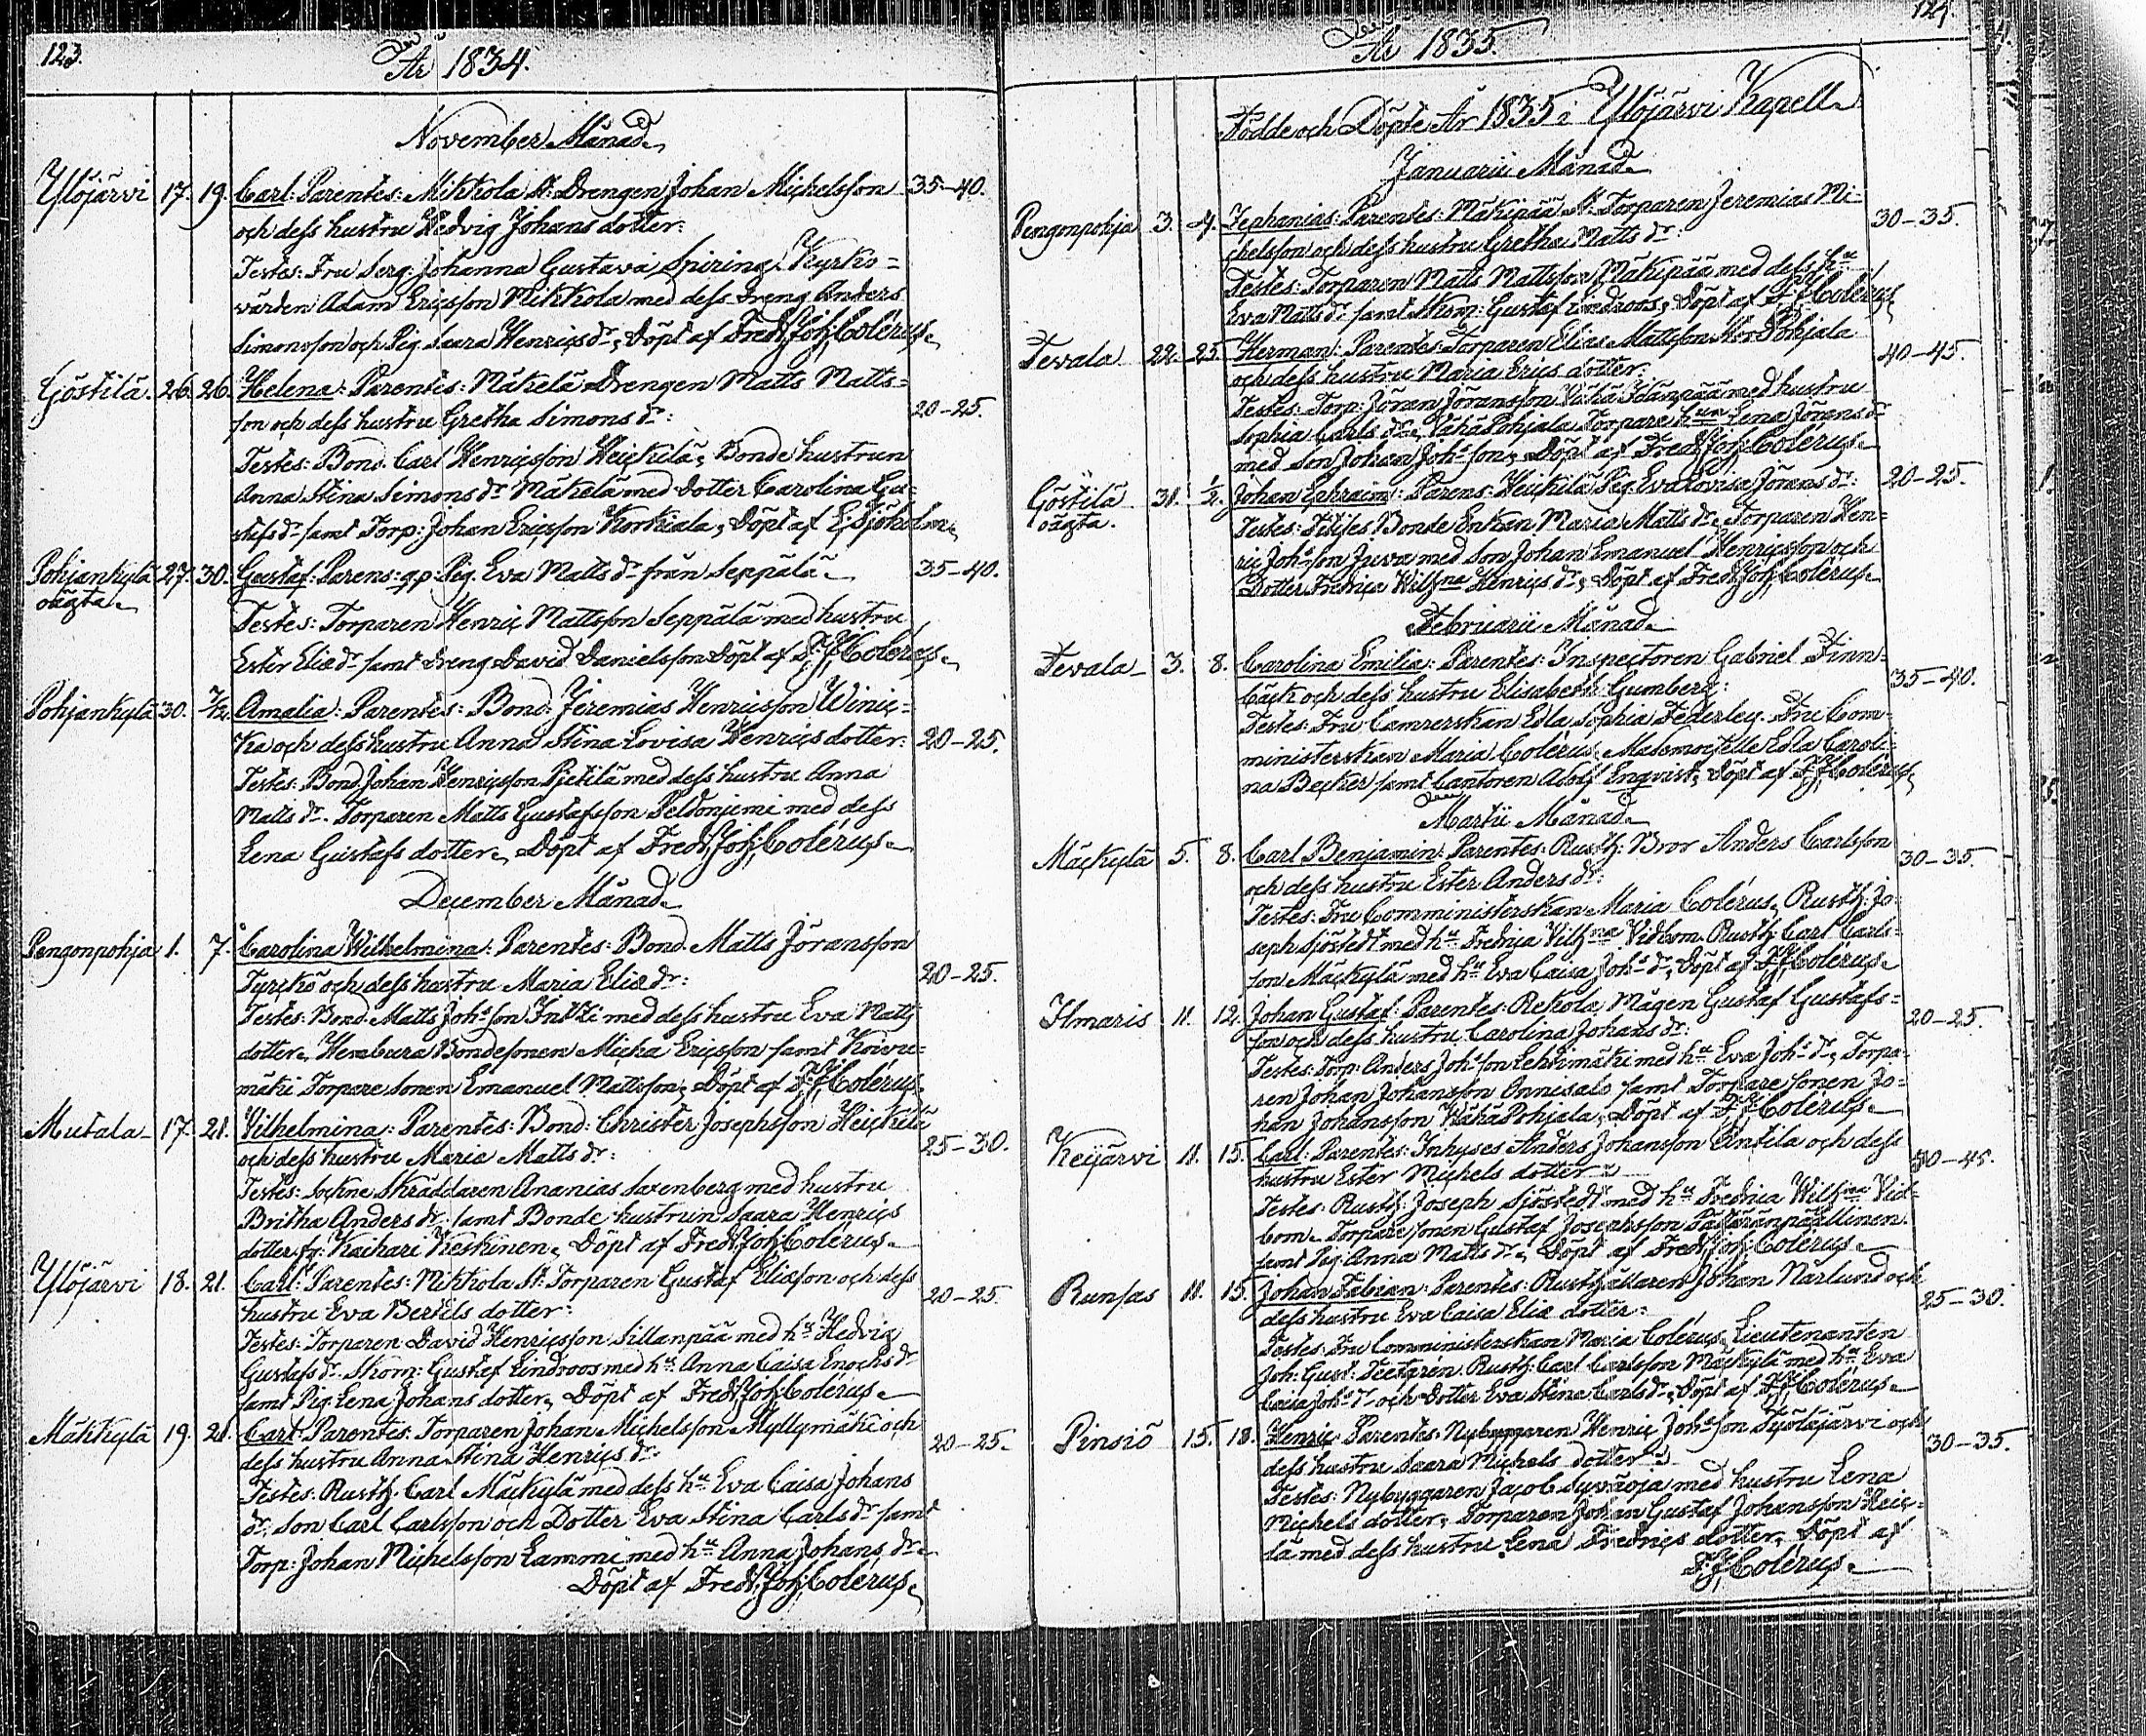 123.
År 1834.
November Månad
Ylöjärvi 17. 19. Carl: Parentes: Mikkola St. Drengen Johan Michelsson 35-40.
och dess hustru Hedvig Johans dotter:
Testes: Fru Serg: Johanna Gustava Spiring, Kyrko=
värden Adam Ericsson Mikkola med dess Dreng Anders
Simonsson och Pig. Saara Henrics dr, Döpt af Fredr: Joh: Colérus
Göstilä. 26. 26. Helena: Parentes: Mäkelä Drengen Matts Matts=
son och dess hustru Gretha Simons dr: 20-25.
Testes: Bond. Carl Henricsson Heickilä, Bonde hustrun
Anna Stina Simons dr Mäkelä med dotter Carolina Gu=
stafs dr samt Torp: Johan Ericsson Korkiala, Döpt af E. Sjöholm
Pohjankylä 27. 30. Gustaf: Parens: q.p. Pig. Eva Matts dr från Seppälä 35-40.
oägta
Testes: Torparen Henric Mattsson Seppälä med hustru
Ester Eliæ dr samt Dreng David Danielsson Döpt af F. J. Colérus
Pohjankylä 30. 7/12. Amalia: Parentes: Bond. Jeremias Henricsson Winic=
ka och dess hustru Anna Stina Lovisa Henrics dotter: 20-25.
Testes: Bond. Johan Henricsson Pietilä med dess hustru Anna
Matts dr. Torparen Matts Gustafsson Peldoniemi med dess
Lena Gustafs dotter, Döpt af Fredr: Joh: Colérus
December Månad
Pengonpohja 1. 7. Carolina Wilhelmina: Parentes: Bond. Matts Jöransson
Tyrckö och dess hustru Maria Eliæ dr: 20-25.
Testes: Bond. Matts Johs son Intti med dess hustru Eva Matts
dotter, Bondesonen Micka Ericsson samt Koivu=
mäki Torpare sonen Emanuel Mattsson, Döpt af F. J. Colérus.
Mutala 17. 21. Vilhelmina: Parentes: Bond: Christer Josephsson Heickilä
och dess hustru Maria Matts dr: 25-30.
Testes: Sockne Skräddaren Ananias Saxenberg med hustru
Britha Anders dr, samt Bonde hustrun Saara Henrics
dotter fr. Kaihari Keskinen, Döpt af Fredr: Joh: Colérus
Ylöjärvi 18. 21. Carl: Parentes: Mikkola St. Torparen Gustaf Eliæson och dess
hustru Eva Bertels dotter: 20-25.
Testes: Torparen David Henricsson Sillanpää med hu Hedvig
Gustafs dr. Skom: Gustaf Lindroos med hu Anna Caisa Enochs dr
samt Pig. Lena Johans dotter, Döpt af Fredr: Joh: Colérus
Mäkkylä 19. 21. Carl: Parentes: Torparen Johan Michelsson Myllymäki och
dess hustru Anna Stina Henrics dr: 20-25.
Testes: Rusth. Carl Mäckylä med dess hu Eva Caisa Johans
dr, Son Carl Carlsson och Dotter Eva Stina Carls dr samt
Torp: Johan Michelsson Lammi med hu Anna Johans dr
Döpt af Fredr: Joh: Colérus
124.
År 1835.
Födde och Döpte År 1835 i Ylöjärvi Kapell
Januarii Månad
Pengonpohja 3. 4. Zephanias: Parentes: Mäkipää St. Torparen Jeremias Mi=
chelsson och dess hustru Gretha Matts dr: 30-35.
Testes: Torparen Matts Mattsson Mäkipää med dess hu
Eva Matts dr samt Skom: Gustaf Lindroos, Döpt af F. J. Colérus
Tevala. 22. 25. Herman: Parentes: Torparen Elias Mattsson Pohjala
och dess hustru Maria Erics dotter: 40-45.
Testes: Torp: Jöran Jöransson Vähä Idänpää med hustru
Sophia Carls dr, Vähä Pohjala Torpare hun Lena Jörans dr
med Son Johan Johs son, Döpt af Fredr: Joh: Colérus
Göstilä 31. 1/2. Johan Ephraim: Parens: Heickilä Pig. Eva Lovisa Jörans dr: 20-25.
oägta.
Testes: Bonde Enkan Maria Matts dr, Torparen Hen=
ric Johs son Juva med Son Johan Emanuel Henricsson och
Dotter Fredrica Wilhna Henrics dr, Döpt af Fredr: Joh: Colérus
Februarii Månad
Tevala 3. 8. Carolina Emilia: Parentes: Inspectoren Gabriel Finn=
bäck och dess hustru Elisabeth Gumberg: 35-40.
Testes: Fru Camrerskan Edla Sophia Federley. Fru Com=
ministerskan Maria Colérus, Mademoiselle Edla Caroli=
na Becker samt Cantoren Adolf Enqvist, Döpt af F. J. Colérus
Martii Månad
Mäckylä 5. 8. Carl Benjamin: Parentes: Rusth: Bror Anders Carlsson 30-35.
och dess hustru Ester Anders dr:
Testes: Fru Comministerskan Maria Colérus, Rusth: Jo=
seph Sjöstedt med hu Fredrica Vilhna Vidbom. Rusth. Carl Carls=
son Mäckylä med hu Eva Caisa Johs dr, Döpt af F. J. Colérus
Ilmaris 11. 12. Johan Gustaf: Parentes: Rekola Mågen Gustaf Gustafs=
son och dess hustru Carolina Johans dr: 20-25.
Testes: Torp: Anders Johs son Lehtimäki med hu Eva Johs dr, Torpa=
ren Johan Johansson Onnisalo samt Torpare sonen Jo=
han Johansson Wähä Pohjala, Döpt af F. J. Colérus
Keijärvi 11. 15. Carl: Parentes: Inhyses Anders Johansson Antila och dess
hustru Ester Michels dotter 40-45.
Testes: Rusth: Joseph Sjöstedt med hu Fredrica Wilhna Vid=
bom. Torpare sonen Gustaf Josephsson
samt Pig. Anna Matts dr, Döpt af Fredr: Joh: Colérus
Runsas 11. 15. Johan Fabian: Parentes: Rusthållaren Johan Närlund och
dess hustru Eva Caisa Eliæ dotter: 25-30.
Testes: Fru Comministerskan Maria Colérus, Lieutenanten
Joh: Gust: Rusth: Carl Carlsson Mäckylä med hu Eva
Caisa Johs dr och Dotter Eva Stina Carls dr, Döpt af F. J. Colérus
Pinsiö 15. 18. Henric Parentes: Nybyggaren Henric Johs son och
dess hustru Saara Michels dotter 30-35.
Testes: Nybyggaren Jacob Syväoja med hustru Lena
Michels dotter, Torparen Johan Gustaf Johansson Heic=
lä med dess hustru Lena Fredrics dotter, Döpt af
F. J. Colérus